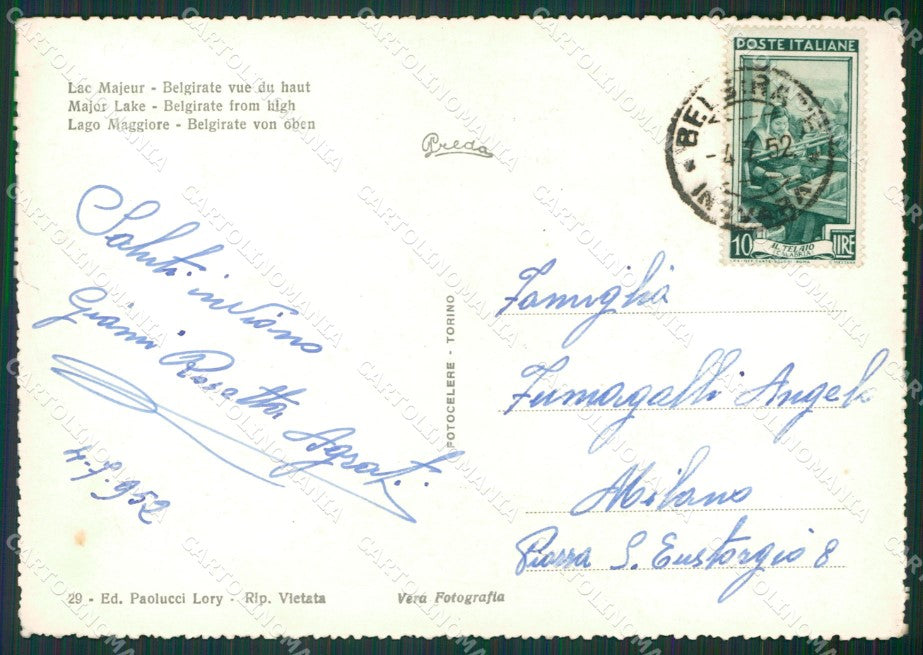 Lac Majeur - Belgirate vue du haut
Major Lake - Belgirate from high
Lago Maggiore - Belgirate von oben
Breda
POSTE ITALIANE
BELGIRATE
- 4 52
NOVARA
10 IL TELAIO LIRE
CALABRIA
Saluti inviano
Gianni Rosetta
Agrati.
4-7-952
FOTOCELERE - TORINO
Famiglia
Fumagalli Angelo
Milano
Piazza S. Eustorgio 8
29 - Ed. Paolucci Lory - Rip. Vietata
Vera Fotografia
CARTOLINOMANIA